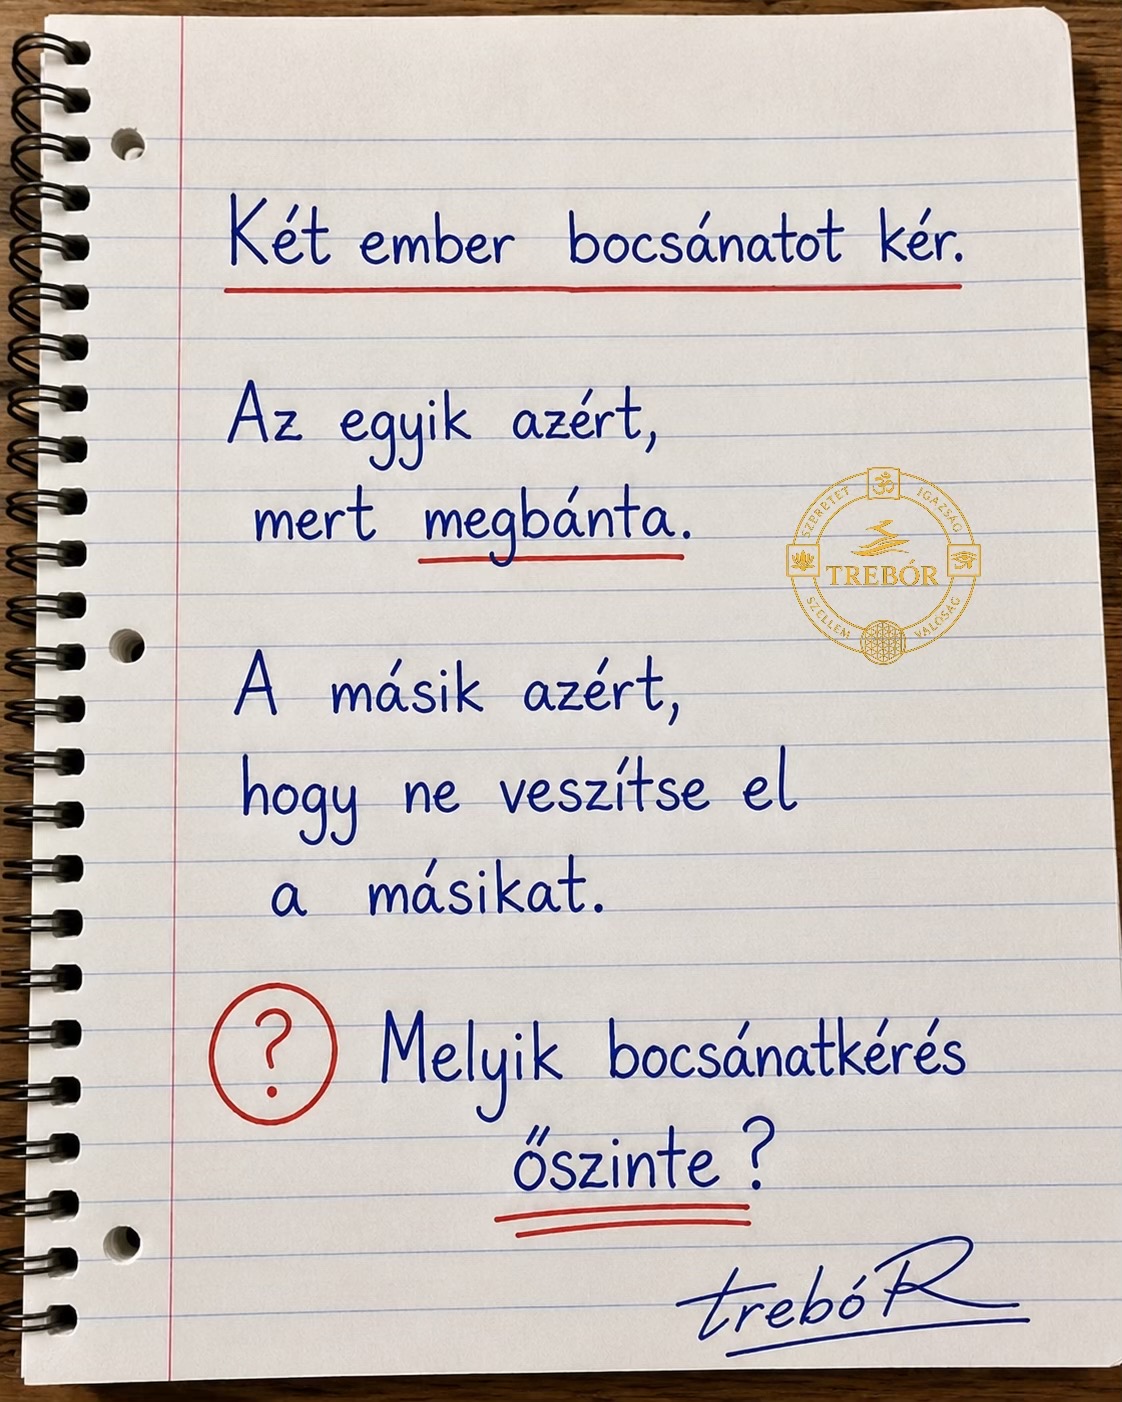 Két ember bocsánatot kér.
Az egyik azért,
mert megbánta.
SZERETET IGAZSÁG
TREBÓR
SZELLEM VALÓSÁG
A másik azért,
hogy ne veszítse el
a másikat.
? Melyik bocsánatkérés
őszinte?
trebóR